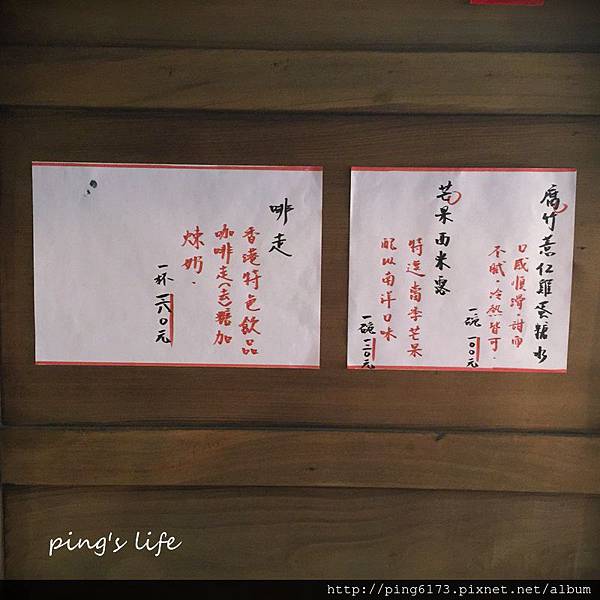 腐竹薏仁雞蛋糖水
口感順滑.甜而
不膩.冷熱皆可.
一碗 一00元
芒果西米露
特選當季芒果
配以南洋口味
一碗 一二0元
啡走
香港特色飲品
咖啡走(去)糖加
煉奶.
一杯 一六0元
ping's life
http://ping6173.pixnet.net/album